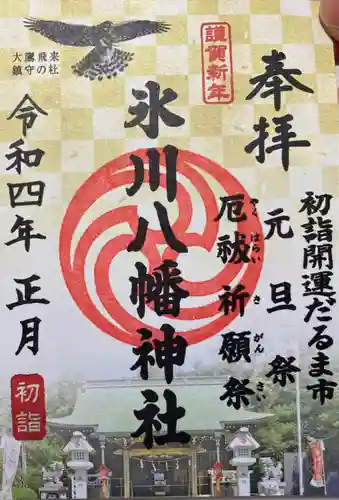 奉拝
謹賀新年
初詣開運だるま市
元旦祭
厄祓祈願祭
やく はらい き がん さい
氷川八幡神社
大鷹飛来
鎮守の杜
令和四年 正月
初詣